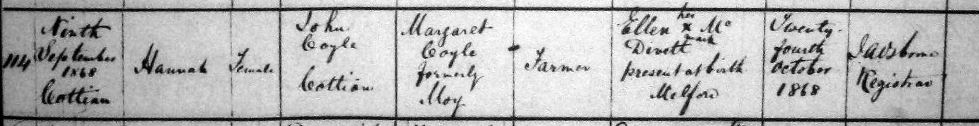 114
Ninth
September
1868
Cottian
Hannah
Female
John
Coyle
Cottian
Margaret
Coyle
formerly
Moy
Farmer
her
Ellen x Mc
mark
Devett
present at birth
Melford
Twenty-
fourth
October
1868
Registrar